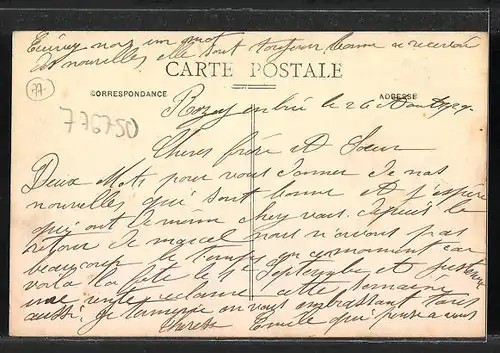 Ecrivez nous un mot
des nouvelles elle sont toujour bonne a recevoir
CARTE POSTALE
77
CORRESPONDANCE
ADRESSE
Rozay en brie le 26 Aout
776750
Cheres frère et Soeur
Deux Mots pour vous donner de nos
nouvelles qui sont bonne et j'espère
qui ont le meme chez vous. depuis le
retour de marcel nous n'avont pas
beaucoup le temps en ce moment car
voila la fête le 1er Septembre et
une reclame cette semaine
aussi. Je termine en vous embrassant tous
Emile qui pense a vous